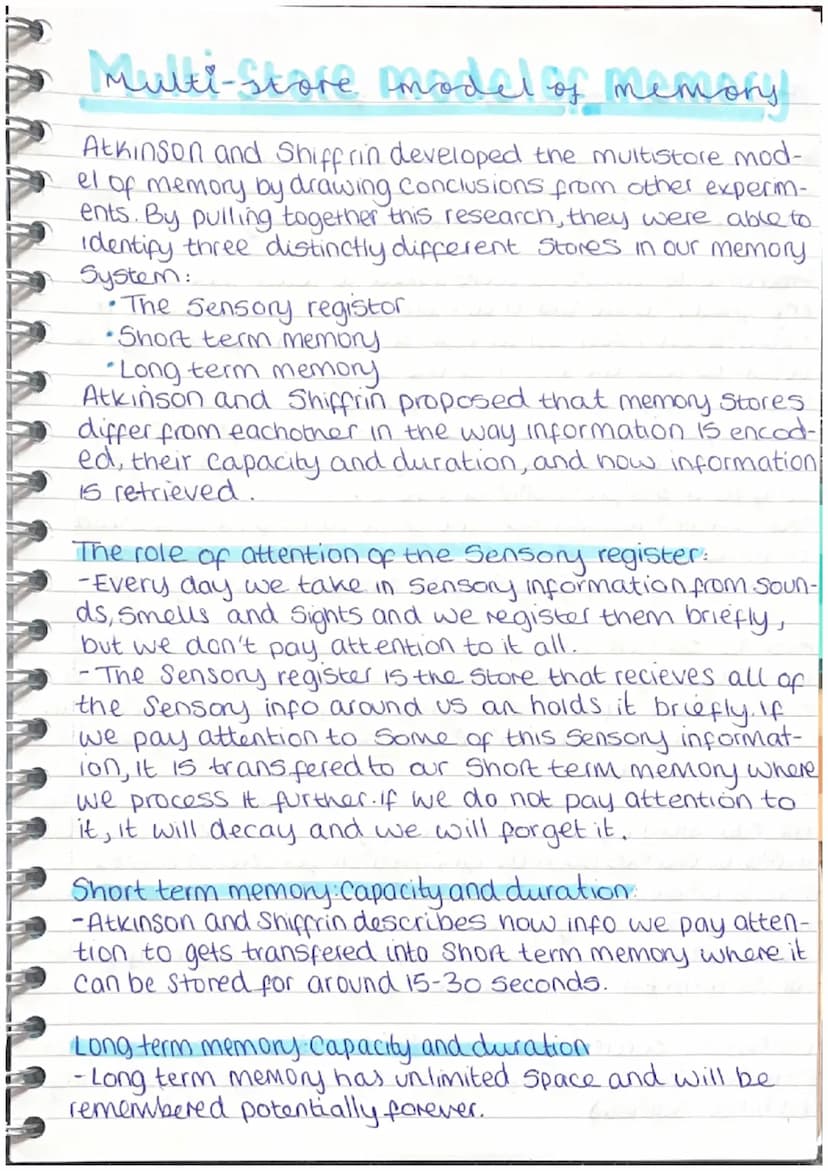 Multi-store model of memory
Atkinson and Shiffrin developed the multistore mod-
el of memory by drawing conclusions from other experim-
ents. By pulling together this research, they were able to
identify three distinctly different stores in our memory
System:
• The Sensory registor
• Short term memory
• Long term memory
Atkinson and Shiffrin proposed that memory stores
differ from eachother in the way information is encod-
ed, their capacity and duration, and how information
is retrieved.
The role of attention of the Sensory register:
- Every day we take in sensory information from soun-
ds, smells and sights and we register them briefly,
but we don't pay attention to it all.
- The Sensory register is the store that recieves all of
the sensory info around us an holds it briefly. If
we pay attention to some of this sensory informat-
ion, it is transfered to our short term memory where
we process it further. If we do not pay attention to
it, it will decay and we will forget it.
Short term memory: Capacity and duration:
- Atkinson and Shiffrin describes how info we pay atten-
tion to gets transfered into short term memory where it
can be stored for around 15-30 seconds.
Long term memory: Capacity and duration
- Long term memory has unlimited space and will be
remembered potentially forever.